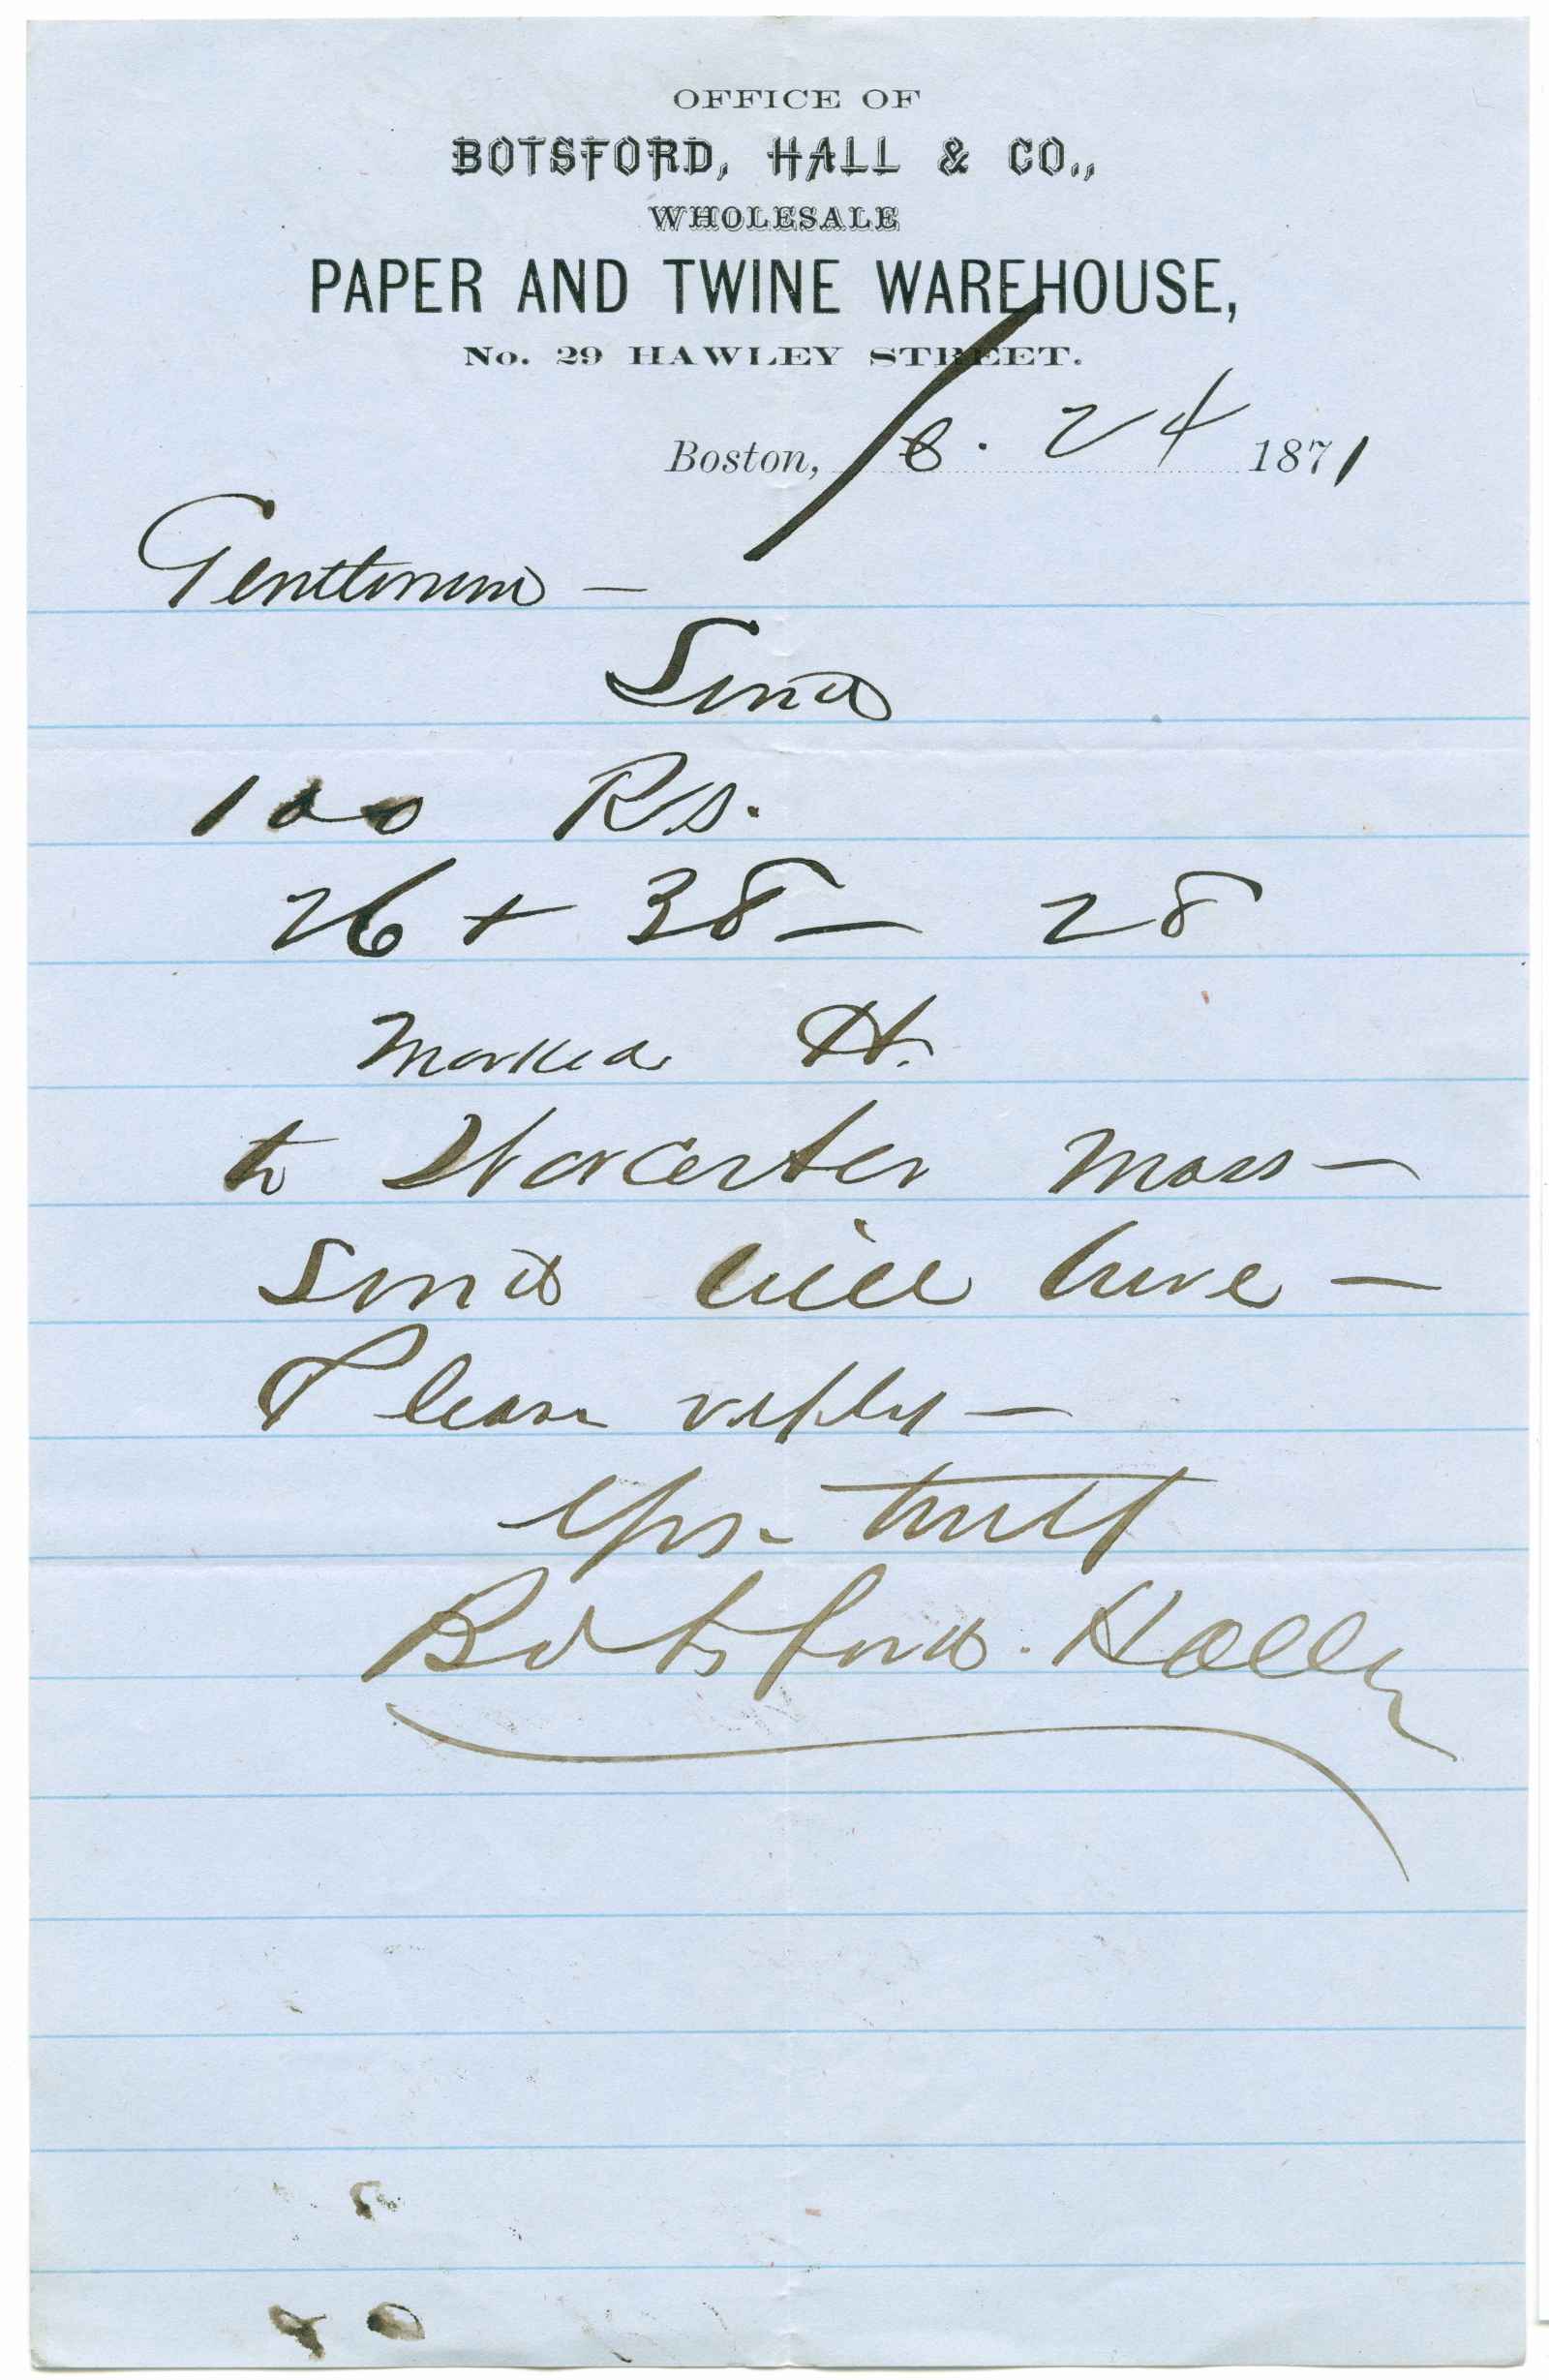 OFFICE OF
BOTSFORD, HALL & CO.,
WHOLESALE
PAPER AND TWINE WAREHOUSE,
No. 29 HAWLEY STREET.
Boston, 24 1871
Gentlemen —
Send
100 Rs.
26 + 38 — 28
Marked H.
to Worcester Mass —
Send bill here —
Please reply —
Yrs. truly
Botsford. Hall